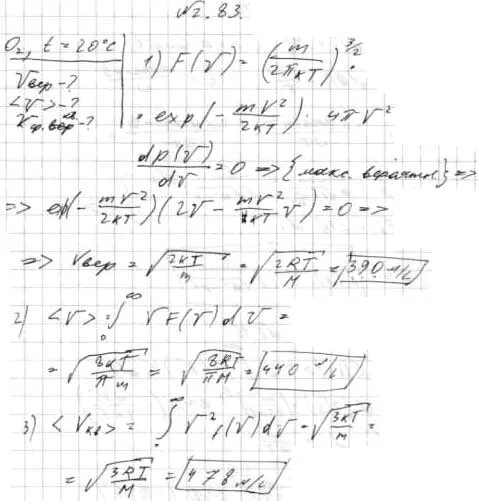 №2.83.
O₂, t = 20°C
Vвер - ?
<v> - ?
1) F(v) = (m/2πkT)^3/2 ·
· exp(-mv²/2kT) · 4πv²
dp(v)/dv = 0 => {макс. вероятн.} =>
=> exp(-mv²/2kT)(2v - mv²/kT v) = 0 =>
=> Vвер = √2kT/m = √2RT/M = 390 м/с
2) <v> = ∫₀^∞ v F(v) dv =
= √8kT/πm = √8RT/πM = 440 м/с
3) <Vкв> = ∫ v² f(v) dv = √3kT/m =
= √3RT/M = 478 м/с